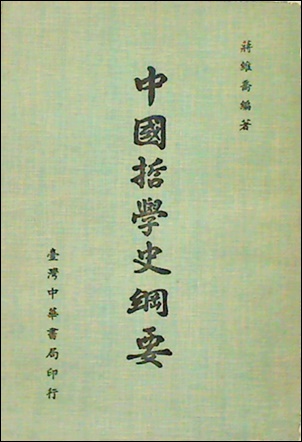 蔣維喬編著
中國哲學史綱要
臺灣中華書局印行